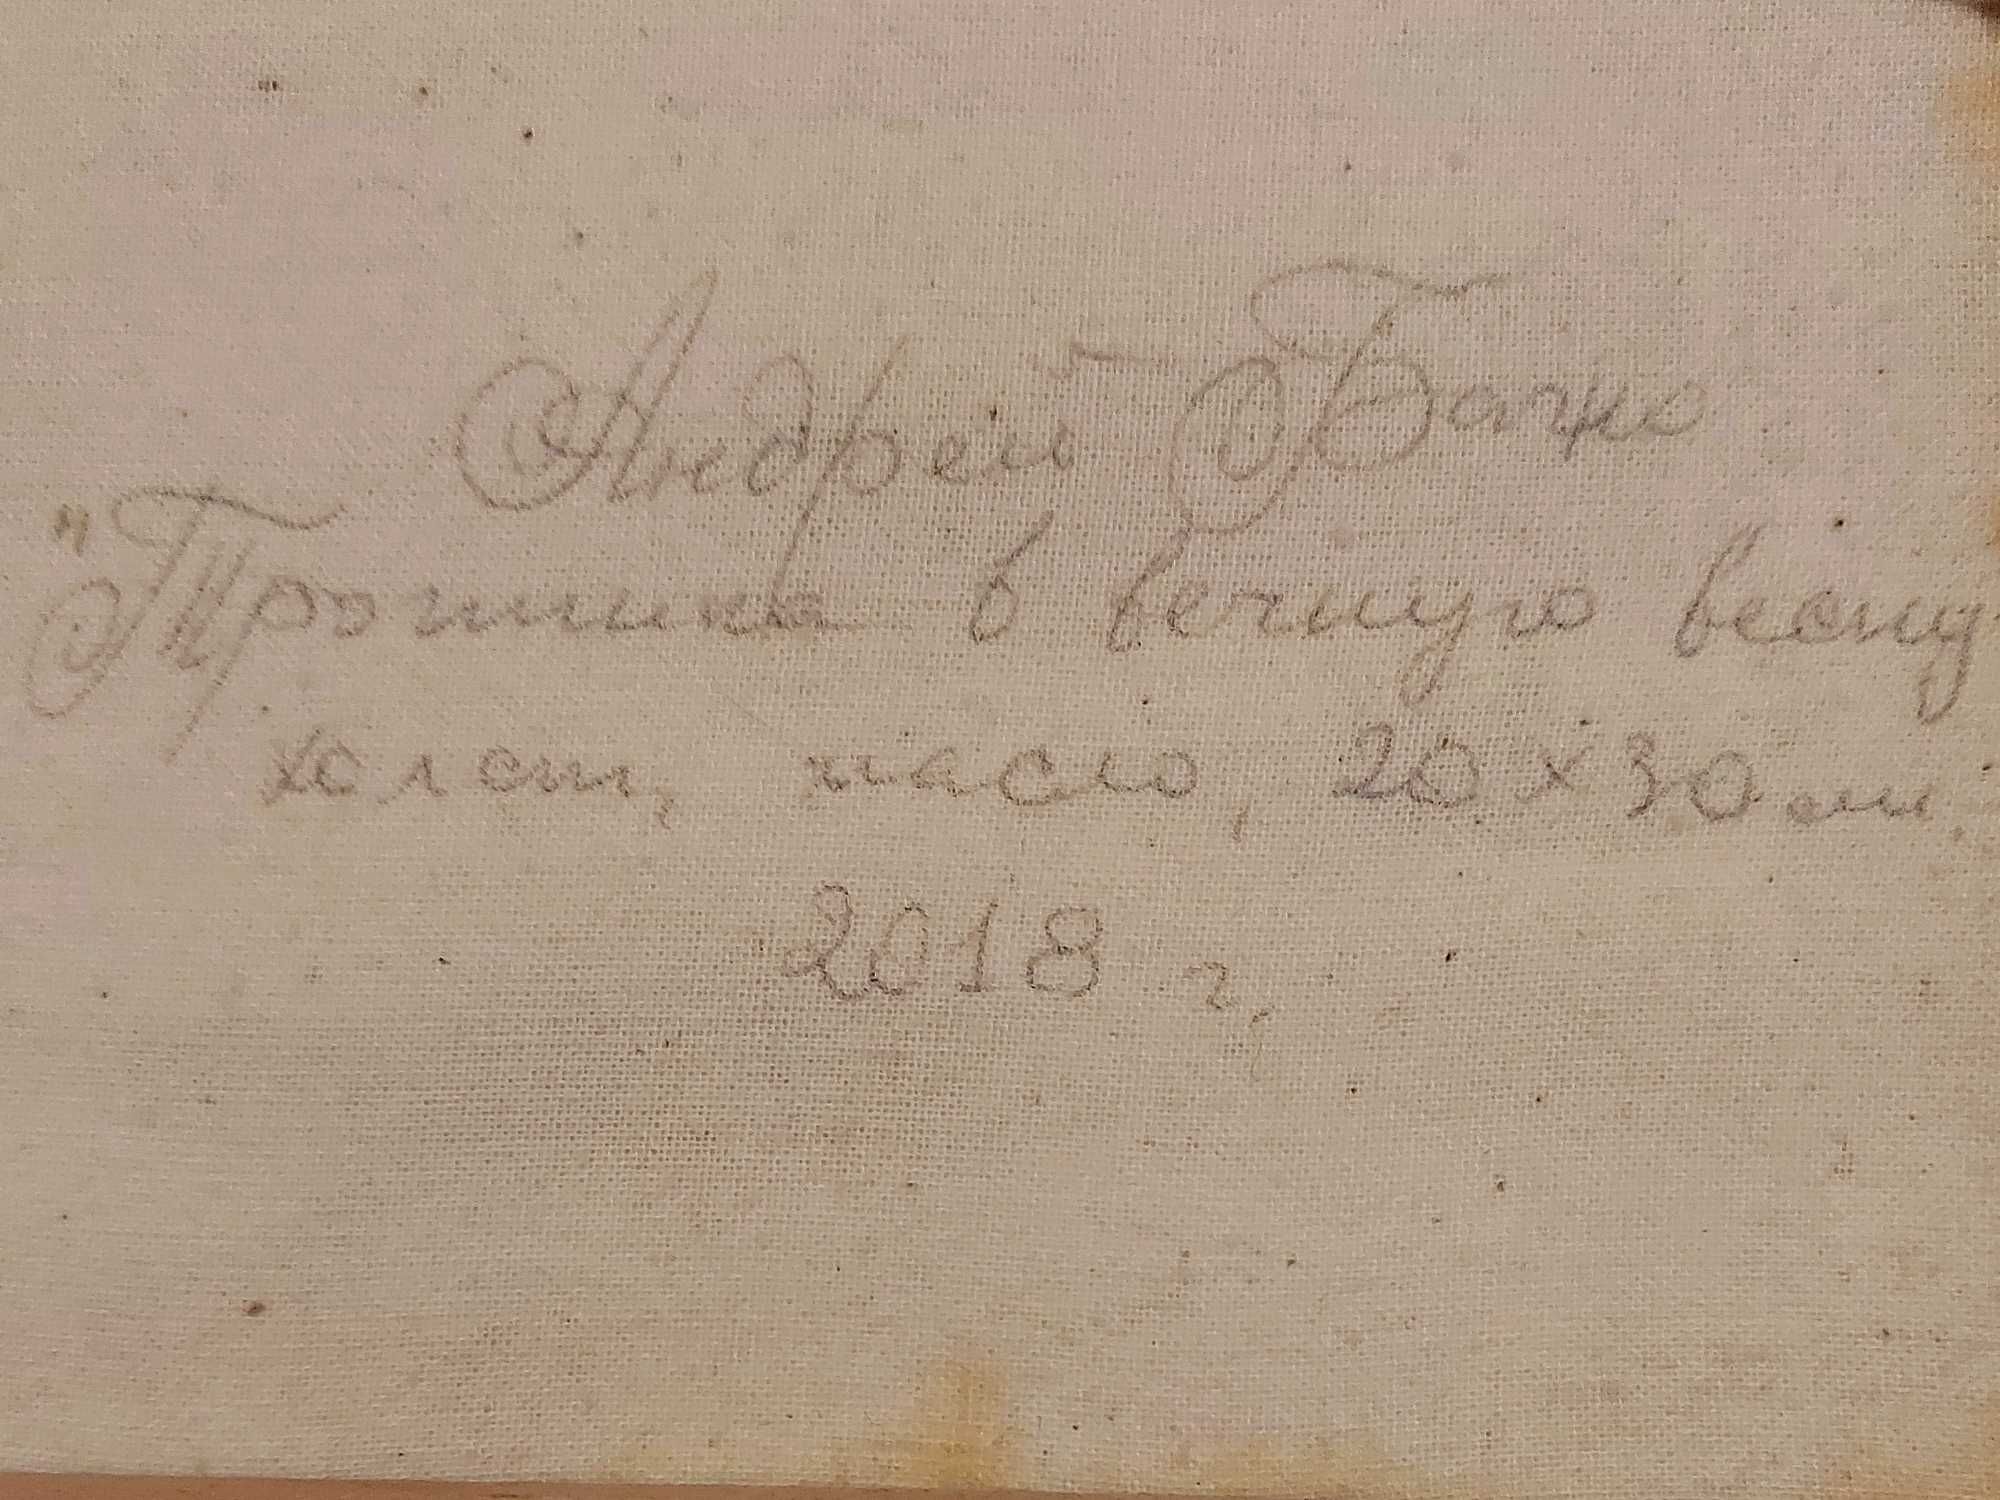 Андрей Бачко
"Тропинка в вечную весну
холст, масло, 20 х 30 см.
2018 г.